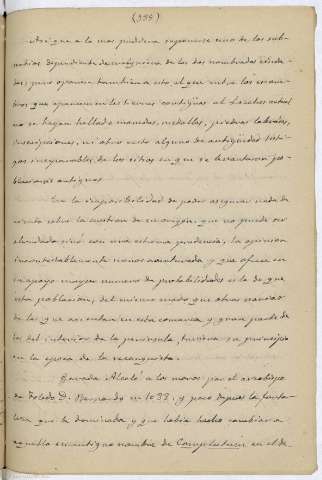 (355)
Así que a lo mas pudiera suponerse uno de los sub-
urbios dependiente de cualquiera de los dos nombrados ciuda-
des; pero oponese tambien a esto el que entre los cimien-
tos que aparecen en los terrenos contiguos al Loeches actual
no se hayan hallado monedas, medallas, piedras labradas,
inscripciones, ni otro resto alguno de antigüedad testi-
gos inseparables de los sitios en que se levantaron po-
blaciones antiguas.
En la imposibilidad de poder asegurar nada de
cierto sobre la cuestion de su origen, que no puede ser
elucidada sinó con una estrema prudencia, la opinion
incontestablemente menos aventurada y que ofrece en
su apoyo mayor numero de probabilidades es la de que
esta poblacion, del mismo modo que otras varias
de las que asientan en esta comarca y gran parte de
las del interior de la peninsula, tuviera su principio
en la epoca de la reconquista.
Ganada Alcalá a los moros por el arzobispo
de Toledo D. Bernardo en 1088, y poco despues la forta-
leza que la dominaba y que había hecho cambiar a
aquella su antiguo nombre de Complutum en el de